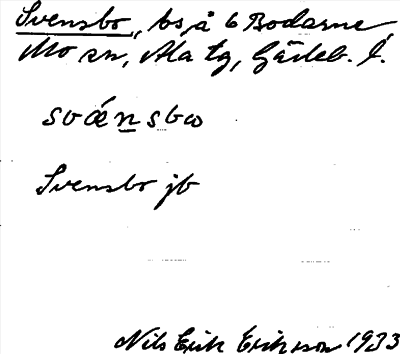 Svensbo, bs, å 6 Bodarne
Mo sn, Ala tg, Gästr. l.
svǽnsbω
Svensbo jb
Nils Erik Erikson 1933